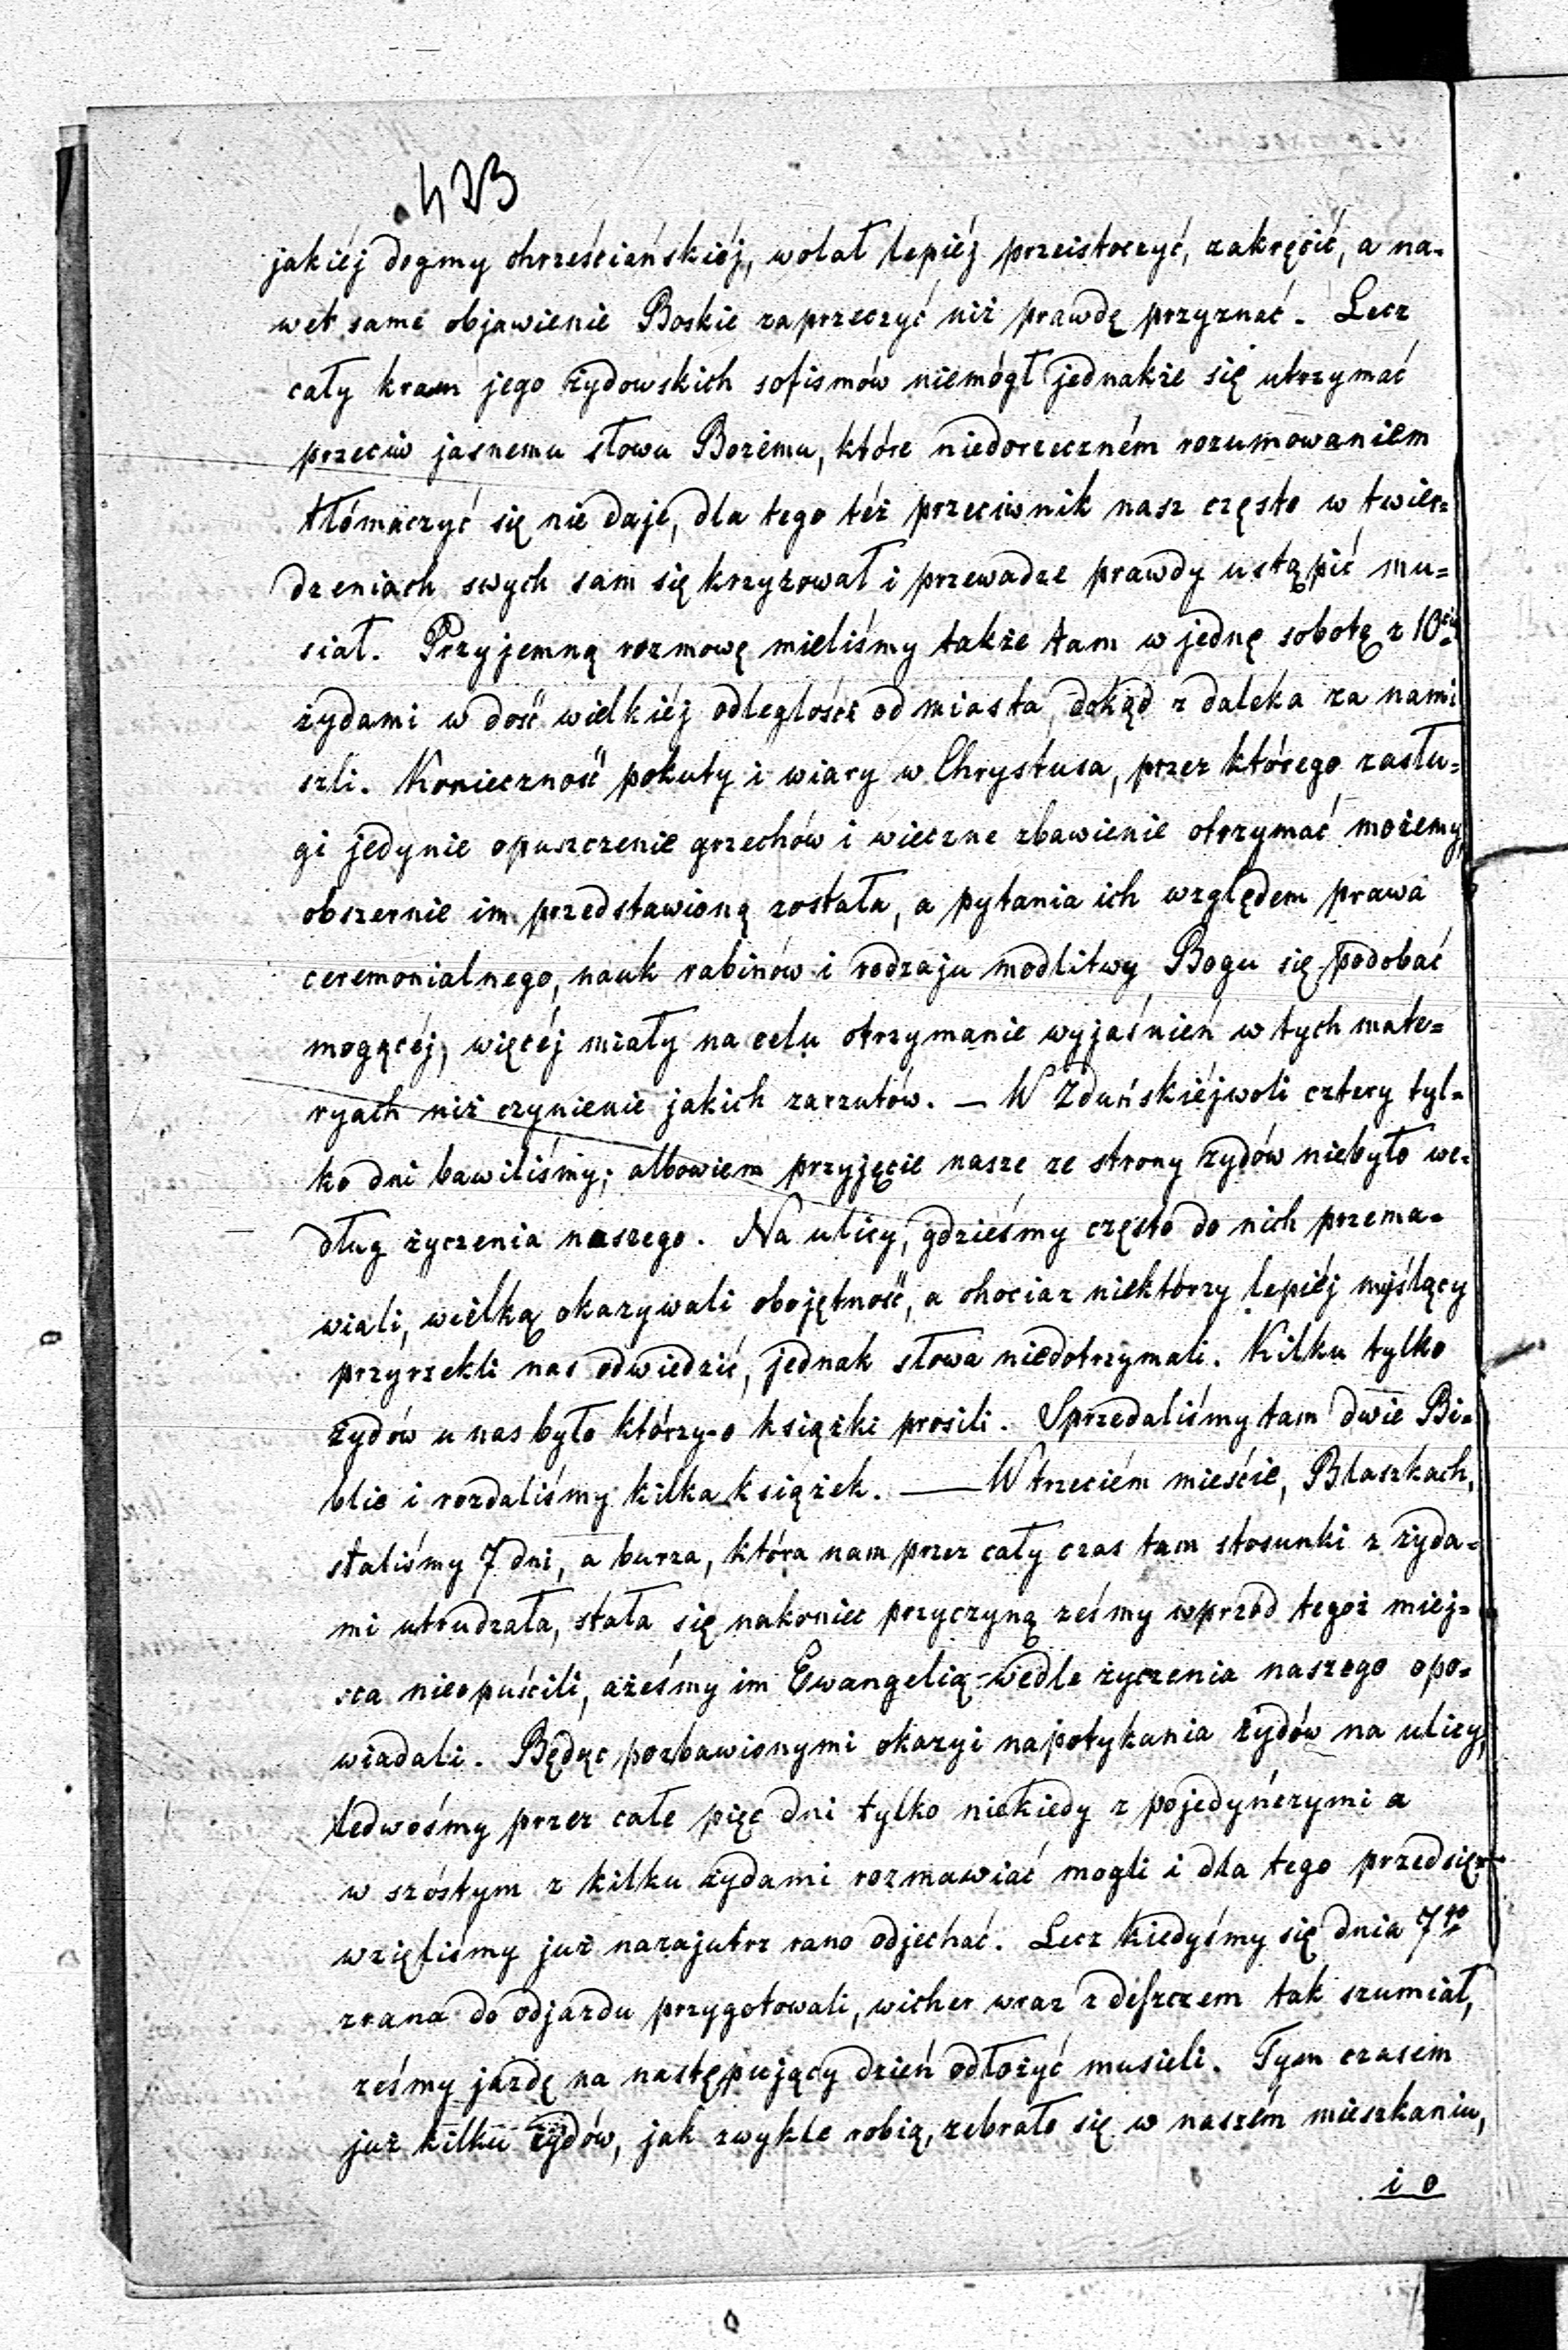 423
jakiéj dogmy chrześciańskiéj, wolał lepiéj przeistoczyć, zakręcić, a na=
wet samé objawienie Boskie zaprzeczyć niż prawdę przyznać. Lecz
cały kram jego żydowskich sofismów niemógł jednakże się utrzymać
przeciw jasnemu słowu Bożemu, które niedorzeczném rozumowaniem
tłómaczyć się nie daje, dla tego téż przeciwnik nasz często w twier=
dzeniach swych sam się krzyżował i przewadze prawdy ustąpić mu=
siał. Przyjemną rozmowę mieliśmy także tam w jednę sobotę z 10cią
żydami w dość wielkiéj odległości od miasta, dokąd z daleka za nami
szli. Konieczność pokuty i wiary w Chrystusa, przez którego zasłu=
gi jedynie opuszczenie grzechów i wieczne zbawienie otrzymać możemy,
obszernie im przedstawioną została, a pytania ich względem prawa
ceremonialnego, nauk rabinów i rodzaju modlitwy Bogu się podobać
mogącéj, więcéj miały na celu otrzymanie wyjaśnień w tych mate=
ryach niż czynienie jakich zarzutów. — W Zduńskiéjwoli cztery tyl=
ko dni bawiliśmy; albowiem przyjęcie nasze ze strony żydów niebyło we=
dług życzenia naszego. Na ulicy, gdzieśmy często do nich przema=
wiali, wielką okazywali obojętność, a chociaz niektórzy lepiéj myślący
przyrzekli nas odwiedzić, jednak słowa niedotrzymali. Kilku tylko
żydów u nas było którzy-o książki prosili. Sprzedaliśmy tam dwie Bi=
blie i rozdaliśmy kilka książek. — W trzeciém mieście, Blaszkach,
staliśmy 7 dni, a burza, która nam przez cały czas tam stosunki z żyda=
mi utrudzała, stała się nakoniec przyczyną żeśmy wprzód tegoż miej=
sca nieopuścili, ażeśmy im Ewangelią wedle życzenia naszego opo=
wiadali. Będąc pozbawionymi okazyi napotykania żydów na ulicy,
ledwośmy przez całe pięc dni tylko niekiedy z pojedyńczymi a
w szóstym z kilku żydami rozmawiać mogli i dla tego przedsię=
wzięliśmy już nazajutrz rano odjechać. Lecz kiedyśmy się dnia 7go
zrana do odjazdu przygotowali, wicher wraz z deszczem tak szumiał,
żeśmy jazdę na następujący dzień odłożyć musieli. Tym czasem
już kilku żydów, jak zwykle robią, zebrało się w naszém mieszkaniu,
i o